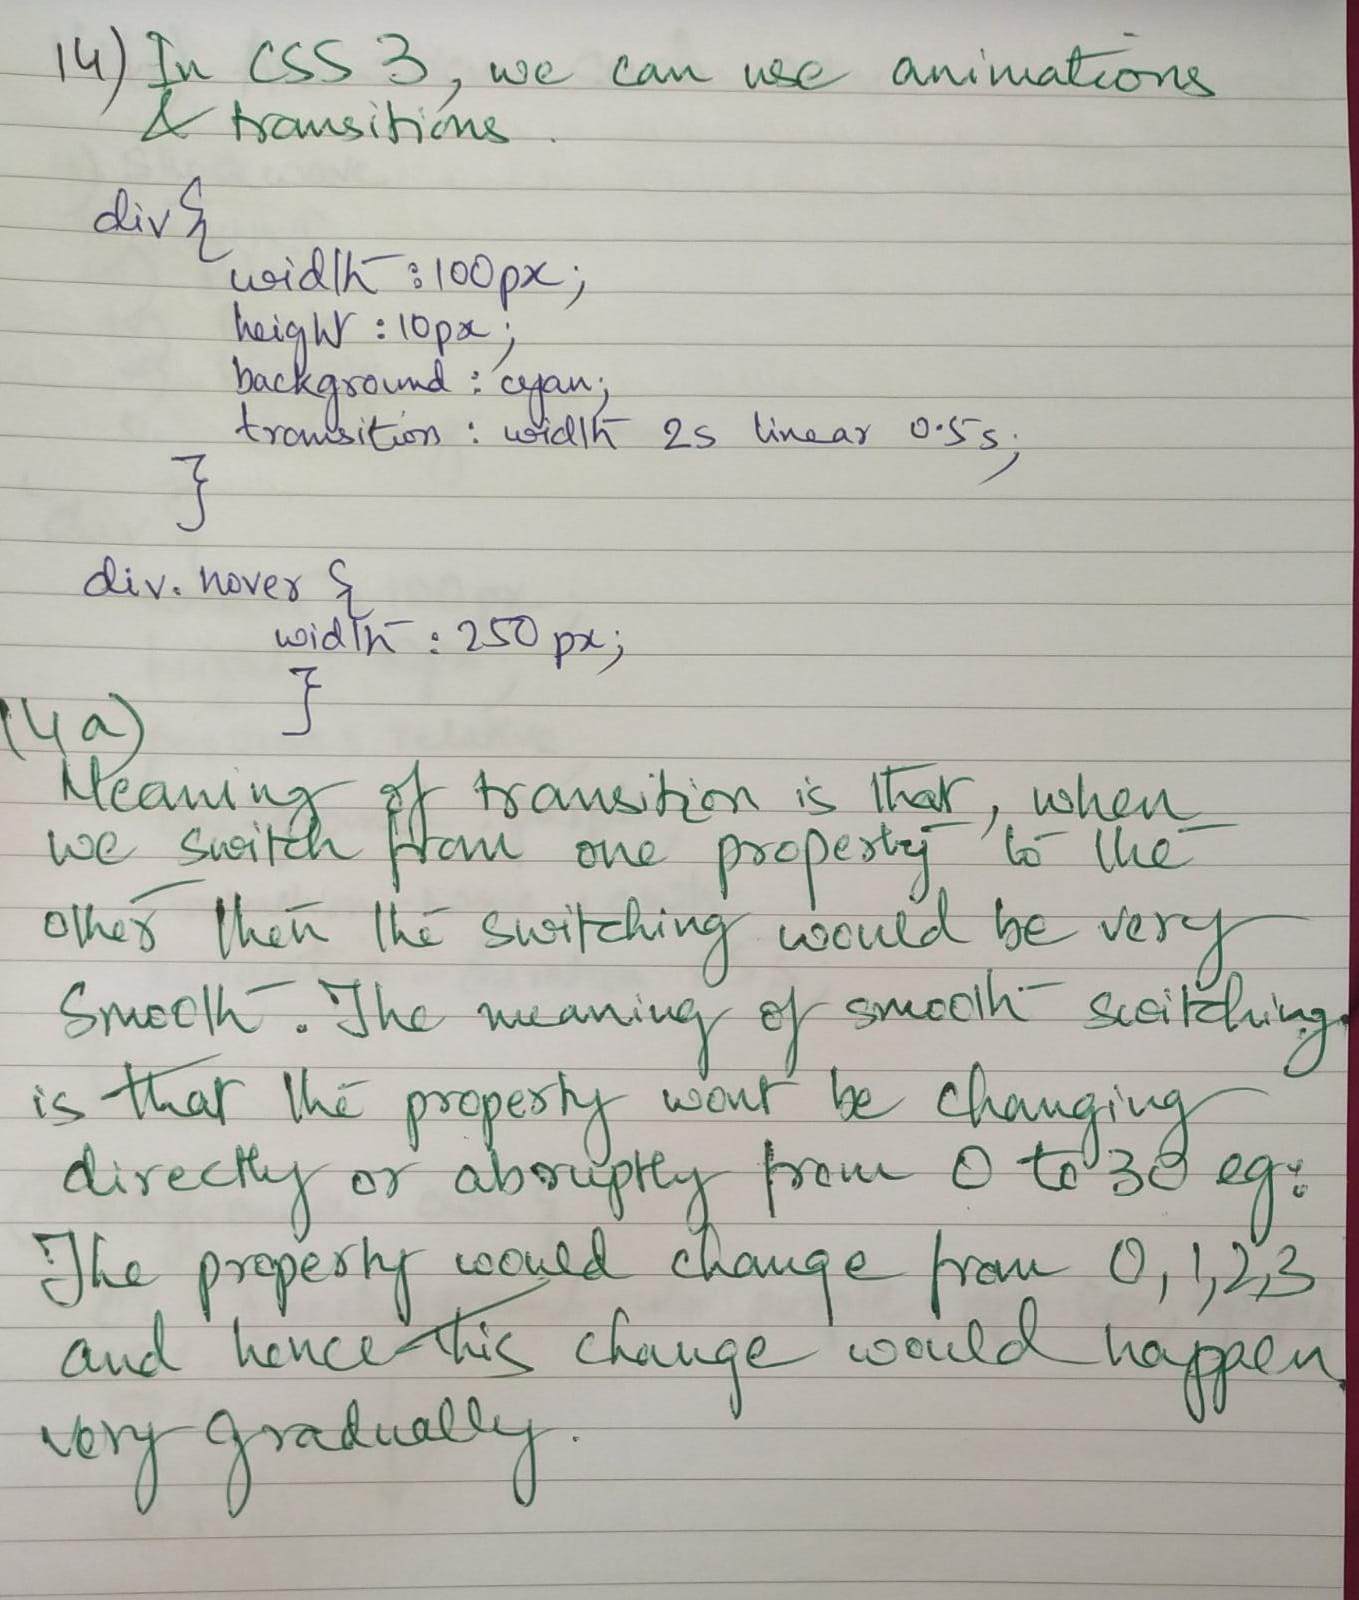 14) In CSS 3, we can use animations
& transitions.
div {
width : 100px;
height : 10px;
background : cyan;
transition : width 2s linear 0.5s;
}
div. hover {
width : 250 px;
}
14a)
Meaning of transition is that, when
we switch from one property to the
other then the switching would be very
smooth. The meaning of smooth switching
is that the property wont be changing
directly or abruptly from 0 to 30 eg:
The property would change from 0, 1, 2, 3
and hence this change would happen
very gradually.